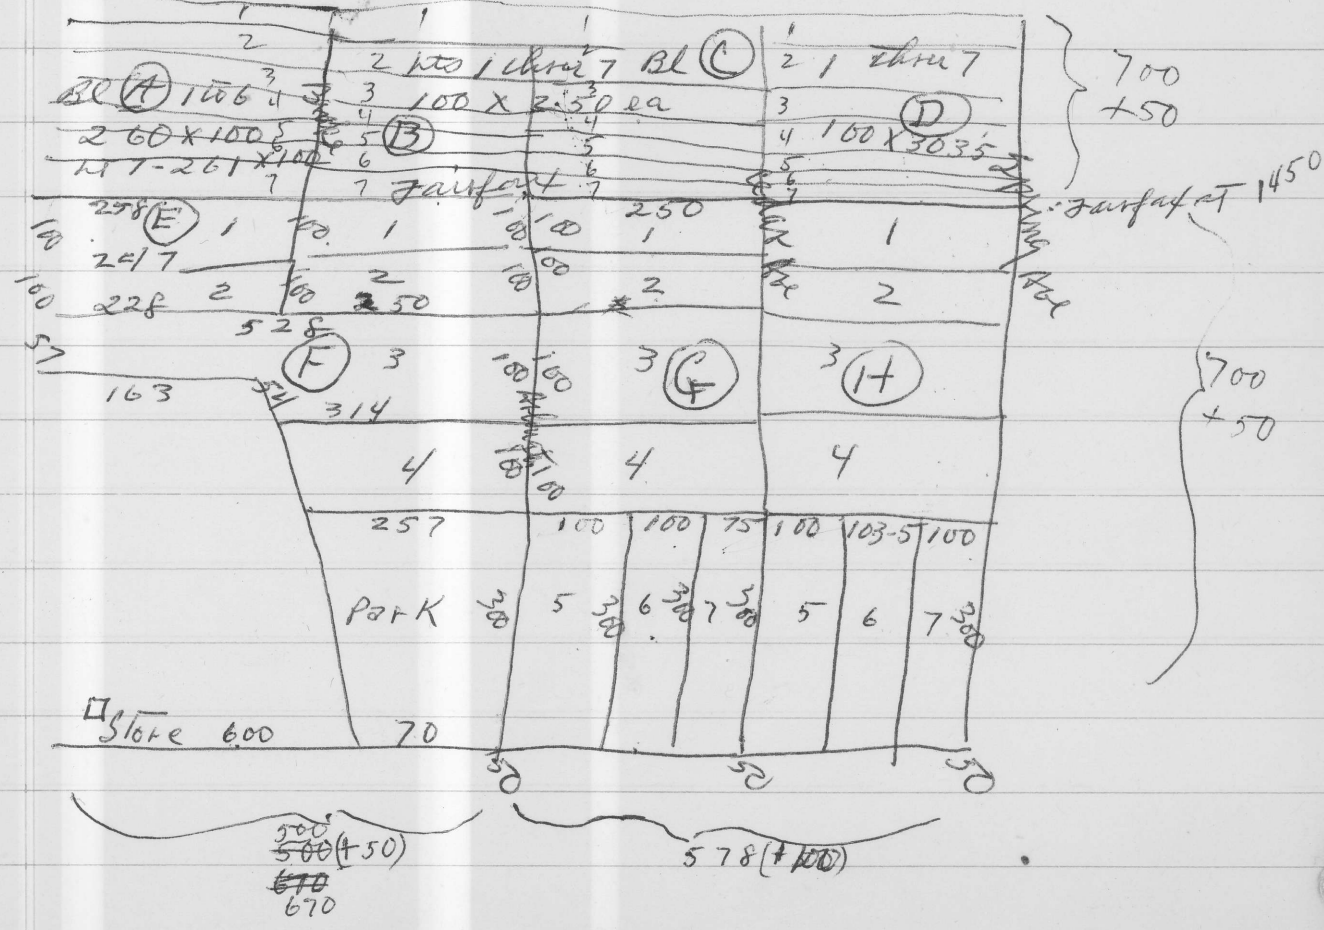 1 1 1 1
2 2 lots 1 thru 7 Bl C 2 1 thru 7
Bl A 1 to 6 3 4 3 100 X 2.50 ea 3 D
260 X 100 5 6 4 5 B 4 5 4 100 X 303.5
Lot 7-261 X 100 7 6 7 Fairfax 6 7 5 6 7
700
+50
Fairfax ST 1450
298 E 1 100 1 100 100 250 1 1
100
247
100 228 2 100 2 250 100 100 2 2
528
57 F 3 100 100 3 G 3 H
163 54 314
700
+50
4 100 100 4 4
257 100 100 75 100 103-5 100
Park 300 5 300 6 300 7 300 5 6 7 300
Store 600 70
50 50 50
500
500 (+50) 578 (+100)
670
670